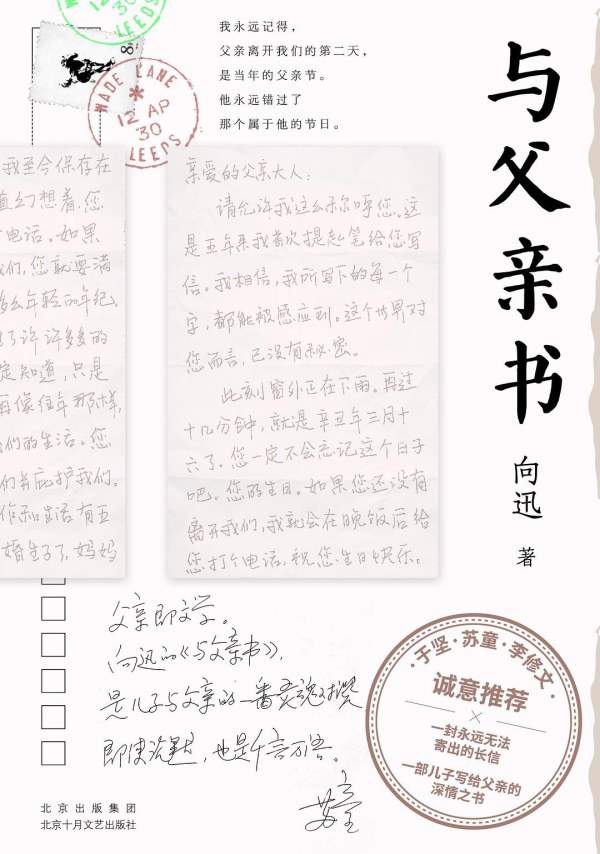 我永远记得，
父亲离开我们的第二天，
是当年的父亲节。
他永远错过了
那个属于他的节日。
与父亲书
向迅 著
WADE LANE
12 AP
30
LEEDS
12 AP
30
LEEDS
我至今保存在
直幻想着，您
个电话。如果
我们，您就要满
多么年轻的年纪。
了许许多多的
定知道，只是
再像往年那样，
我们的生活。您
们并庇护我们。
作和生活有五
婚生子了，妈妈
亲爱的父亲大人：
请允许我这么称呼您。这
是五年来我首次提起笔给您写
信。我相信，我所写下的每一个
字，都能被感应到。这个世界对
您而言，已没有秘密。
此刻窗外正在下雨。再过
十几分钟，就是辛丑年三月十
六了。您一定不会忘记这个日子
吧。您的生日。如果您还没有
离开我们，我就会在晚饭后给
您打个电话，祝您生日快乐。
父亲即文学。
向迅的《与父亲书》，
是儿子与父亲的一番灵魂对谈
即使沉默，也是千言万语。
苏童
于坚·苏童·李修文
诚意推荐
一封永远无法
寄出的长信
一部儿子写给父亲的
深情之书
北京出版集团
北京十月文艺出版社